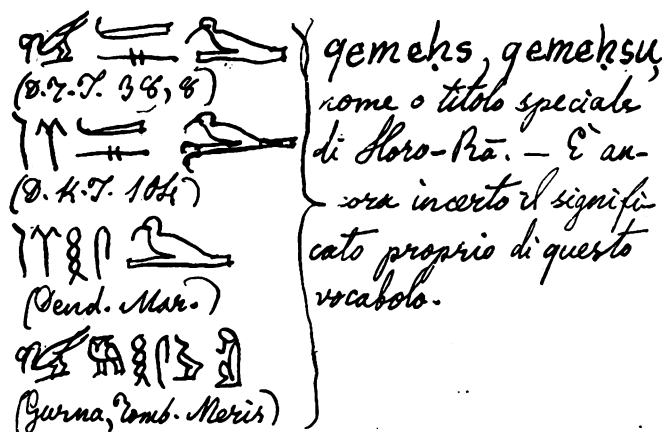 (D.T.T. 38, 8)
(D. K.T. 104)
(Dend. Mar.)
(Gurna, Tomb. Meris)
qemeḥs, qemeḥsu,
nome o titolo speciale
di Horo-Rā. — È an-
cora incerto il signifi-
cato proprio di questo
vocabolo.